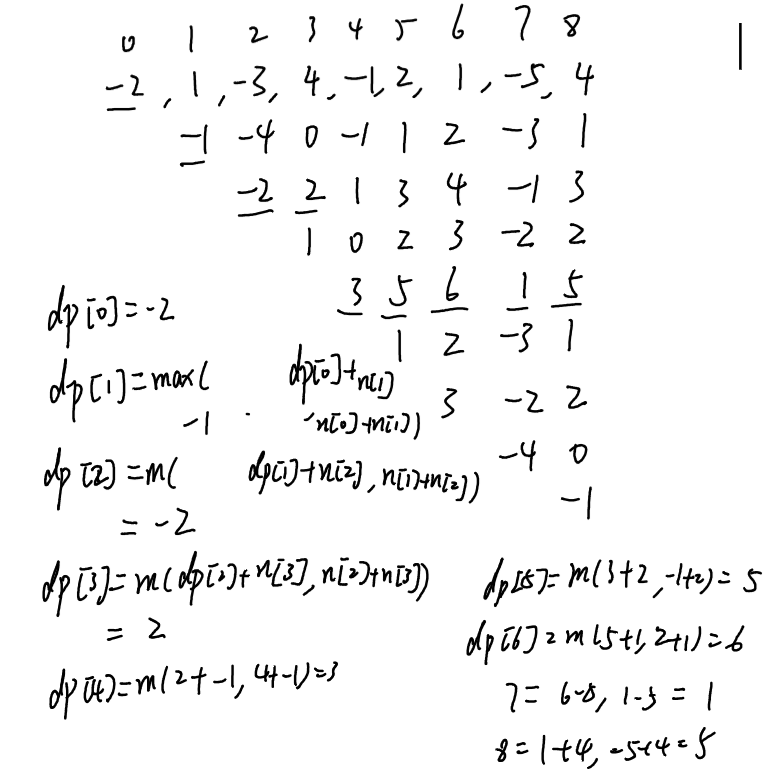 0 1 2 3 4 5 6 7 8
-2, 1, -3, 4, -1, 2, 1, -5, 4
-1 -4 0 -1 1 2 -3 1
-2 2 1 3 4 -1 3
1 0 2 3 -2 2
3 5 6 1 5
1 2 -3 1
3 -2 2
-4 0
-1
dp[0]=-2
dp[1]=max( dp[0]+n[1]
-1 , n[0]+n[1])
dp[2]=m( dp[1]+n[2], n[1]+n[2])
= -2
dp[3]=m(dp[2]+n[3], n[2]+n[3])
= 2
dp[4]=m(2+-1, 4+-1)=3
dp[5]=m(3+2, -1+2)=5
dp[6]=m(5+1, 2+1)=6
7= 6-5, 1-5 = 1
8=1+4, -5+4=5